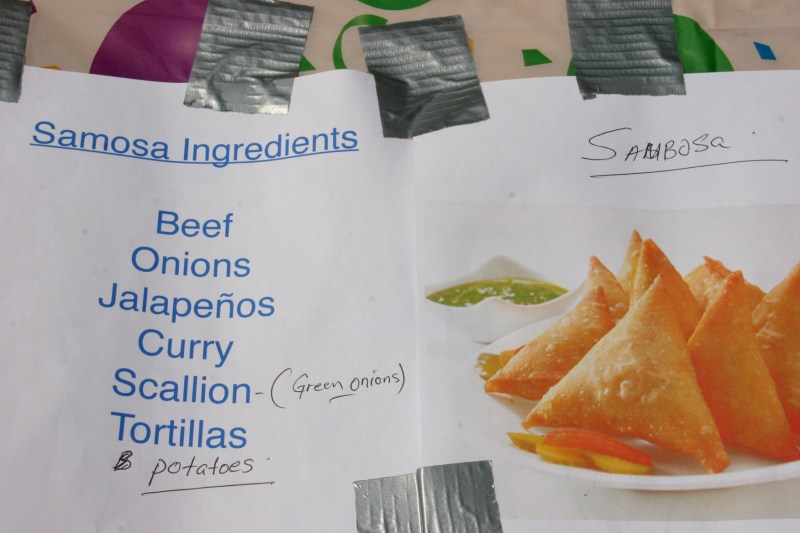 Samosa Ingredients
Beef
Onions
Jalapeños
Curry
Scallion - (Green onions)
Tortillas
potatoes.
SAMBOSa.